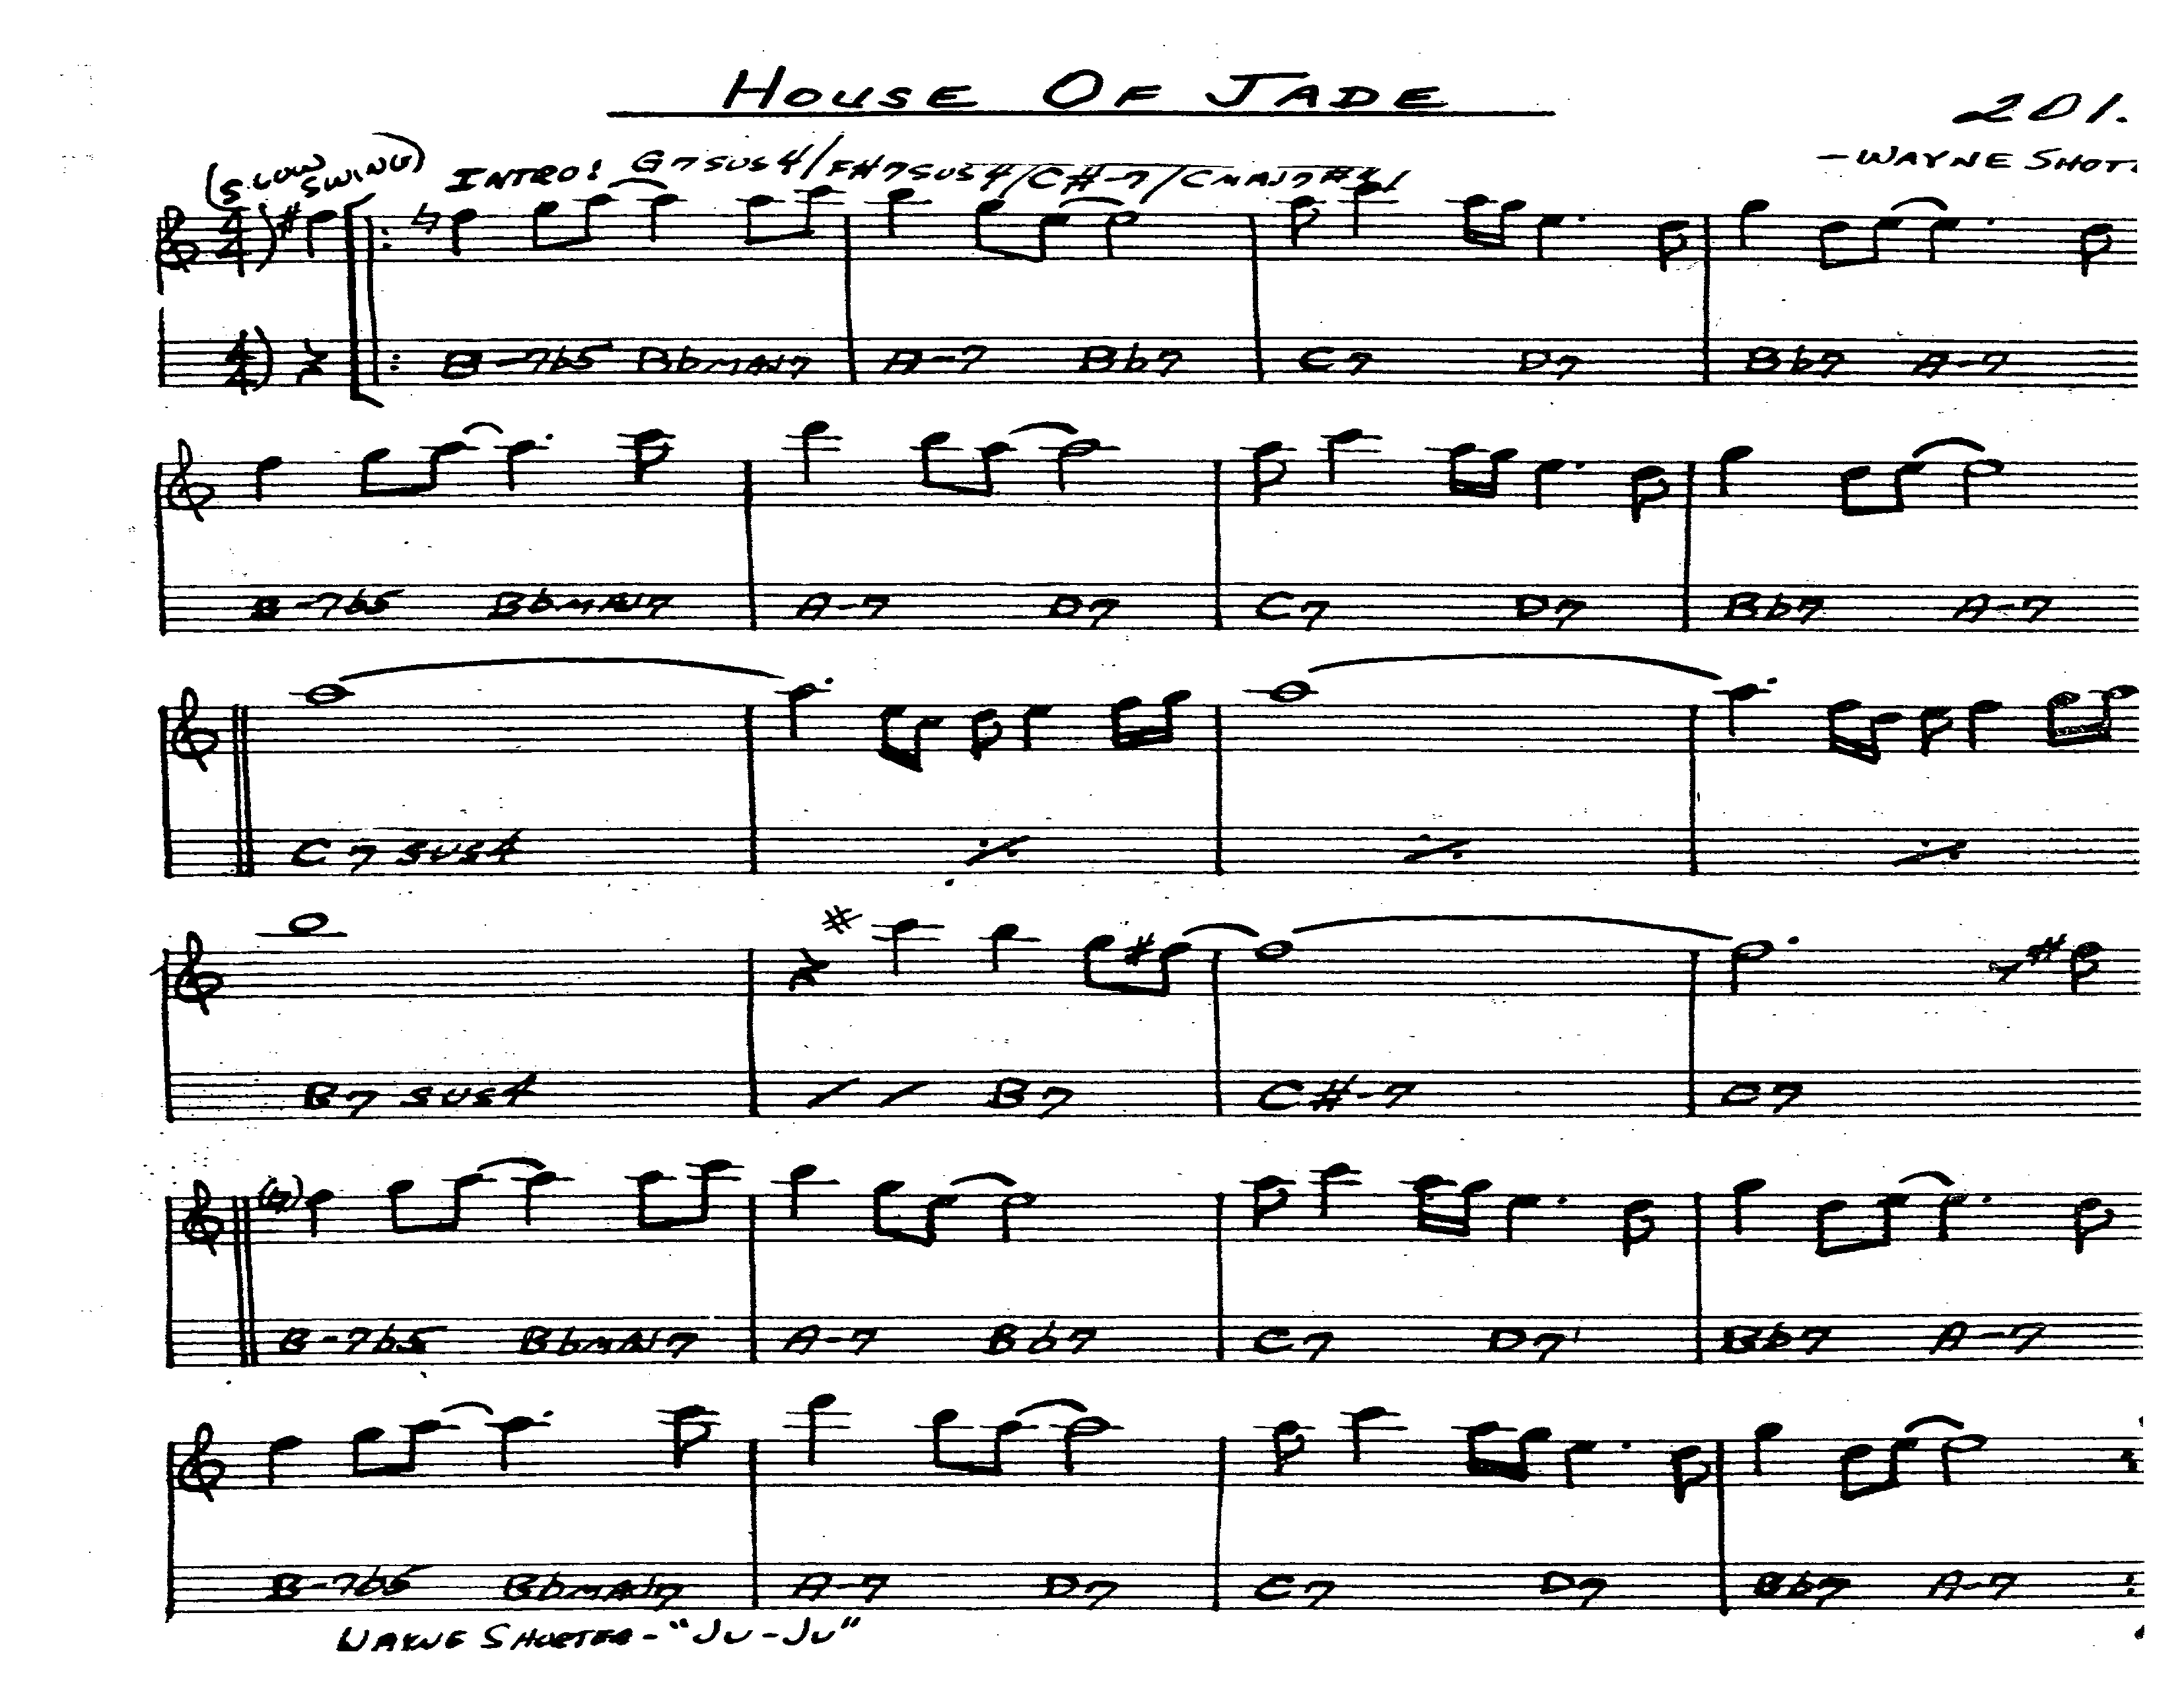 HOUSE OF JADE
201.
(SLOW SWING) INTRO: G7SUS4/F#7SUS4/C#-7/CMAJ7#4/
-WAYNE SHOT
4 4
4 4 B-7b5 BbMAJ7 A-7 Bb7 C7 D7 Bb7 A-7
B-7b5 BbMAJ7 A-7 D7 C7 D7 Bb7 A-7
C7 SUS4
B7 SUS4 B7 C#-7 C7
B-7b5 BbMAJ7 A-7 Bb7 C7 D7 Bb7 A-7
B-7b5 BbMAJ7 A-7 D7 C7 D7 Bb7 A-7
WAYNE SHORTER - "JU-JU"